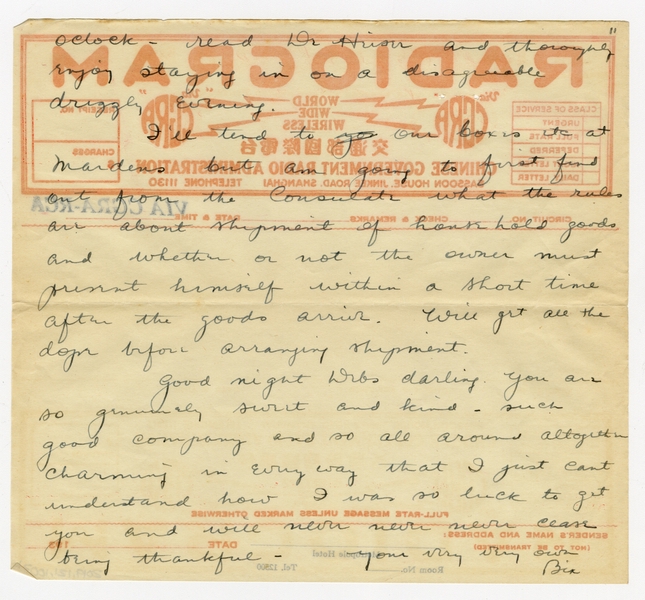 11
oclock - read Dr Hixson and thoroughly
enjoy staying in on a disagreeable
drizzly evening.
I'll tend to our boxes etc at
Mardens but am going to first find
out from the Consulate what the rules
are about shipment of household goods
and whether or not the owner must
present himself within a short time
after the goods arrive. Will get all the
dope before arranging shipment.
Good night darling. You are
so genuinely sweet and kind - such
good company and so all around altogether
charming in every way that I just cant
understand how I was so luck to get
you and will never never never cease
being thankful - your very very own
Bix
RADIOGRAM
"Via CGRA"
"Via CGRA"
WORLD
WIDE
WIRELESS
交通部國際電台
CHINESE GOVERNMENT RADIO ADMINISTRATION
SASSOON HOUSE, JINKEE ROAD, SHANGHAI
TELEPHONE 11130
CLASS OF SERVICE
URGENT
FULL-RATE
DEFERRED
LETTER
RECEIPT NO.
CHARGES
VIA CGRA-RCA
CIRCUIT NO.
CHECK & REMARKS
DATE & TIME
FULL-RATE MESSAGE UNLESS MARKED OTHERWISE
SENDER'S NAME AND ADDRESS:
(NOT TO BE TRANSMITTED)
DATE
Metropole Hotel
Room No.
Tel. 12500